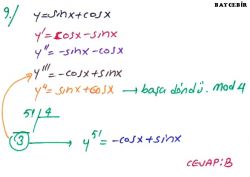 BAYCEBİR
9.) y=sinx+cosx
y'=cosx-sinx
y''=-sinx-cosx
y'''=-cosx+sinx
y⁴=sinx+cosx → başa döndü. mod 4
51 | 4
3 → y⁵¹=-cosx+sinx
CEVAP:B